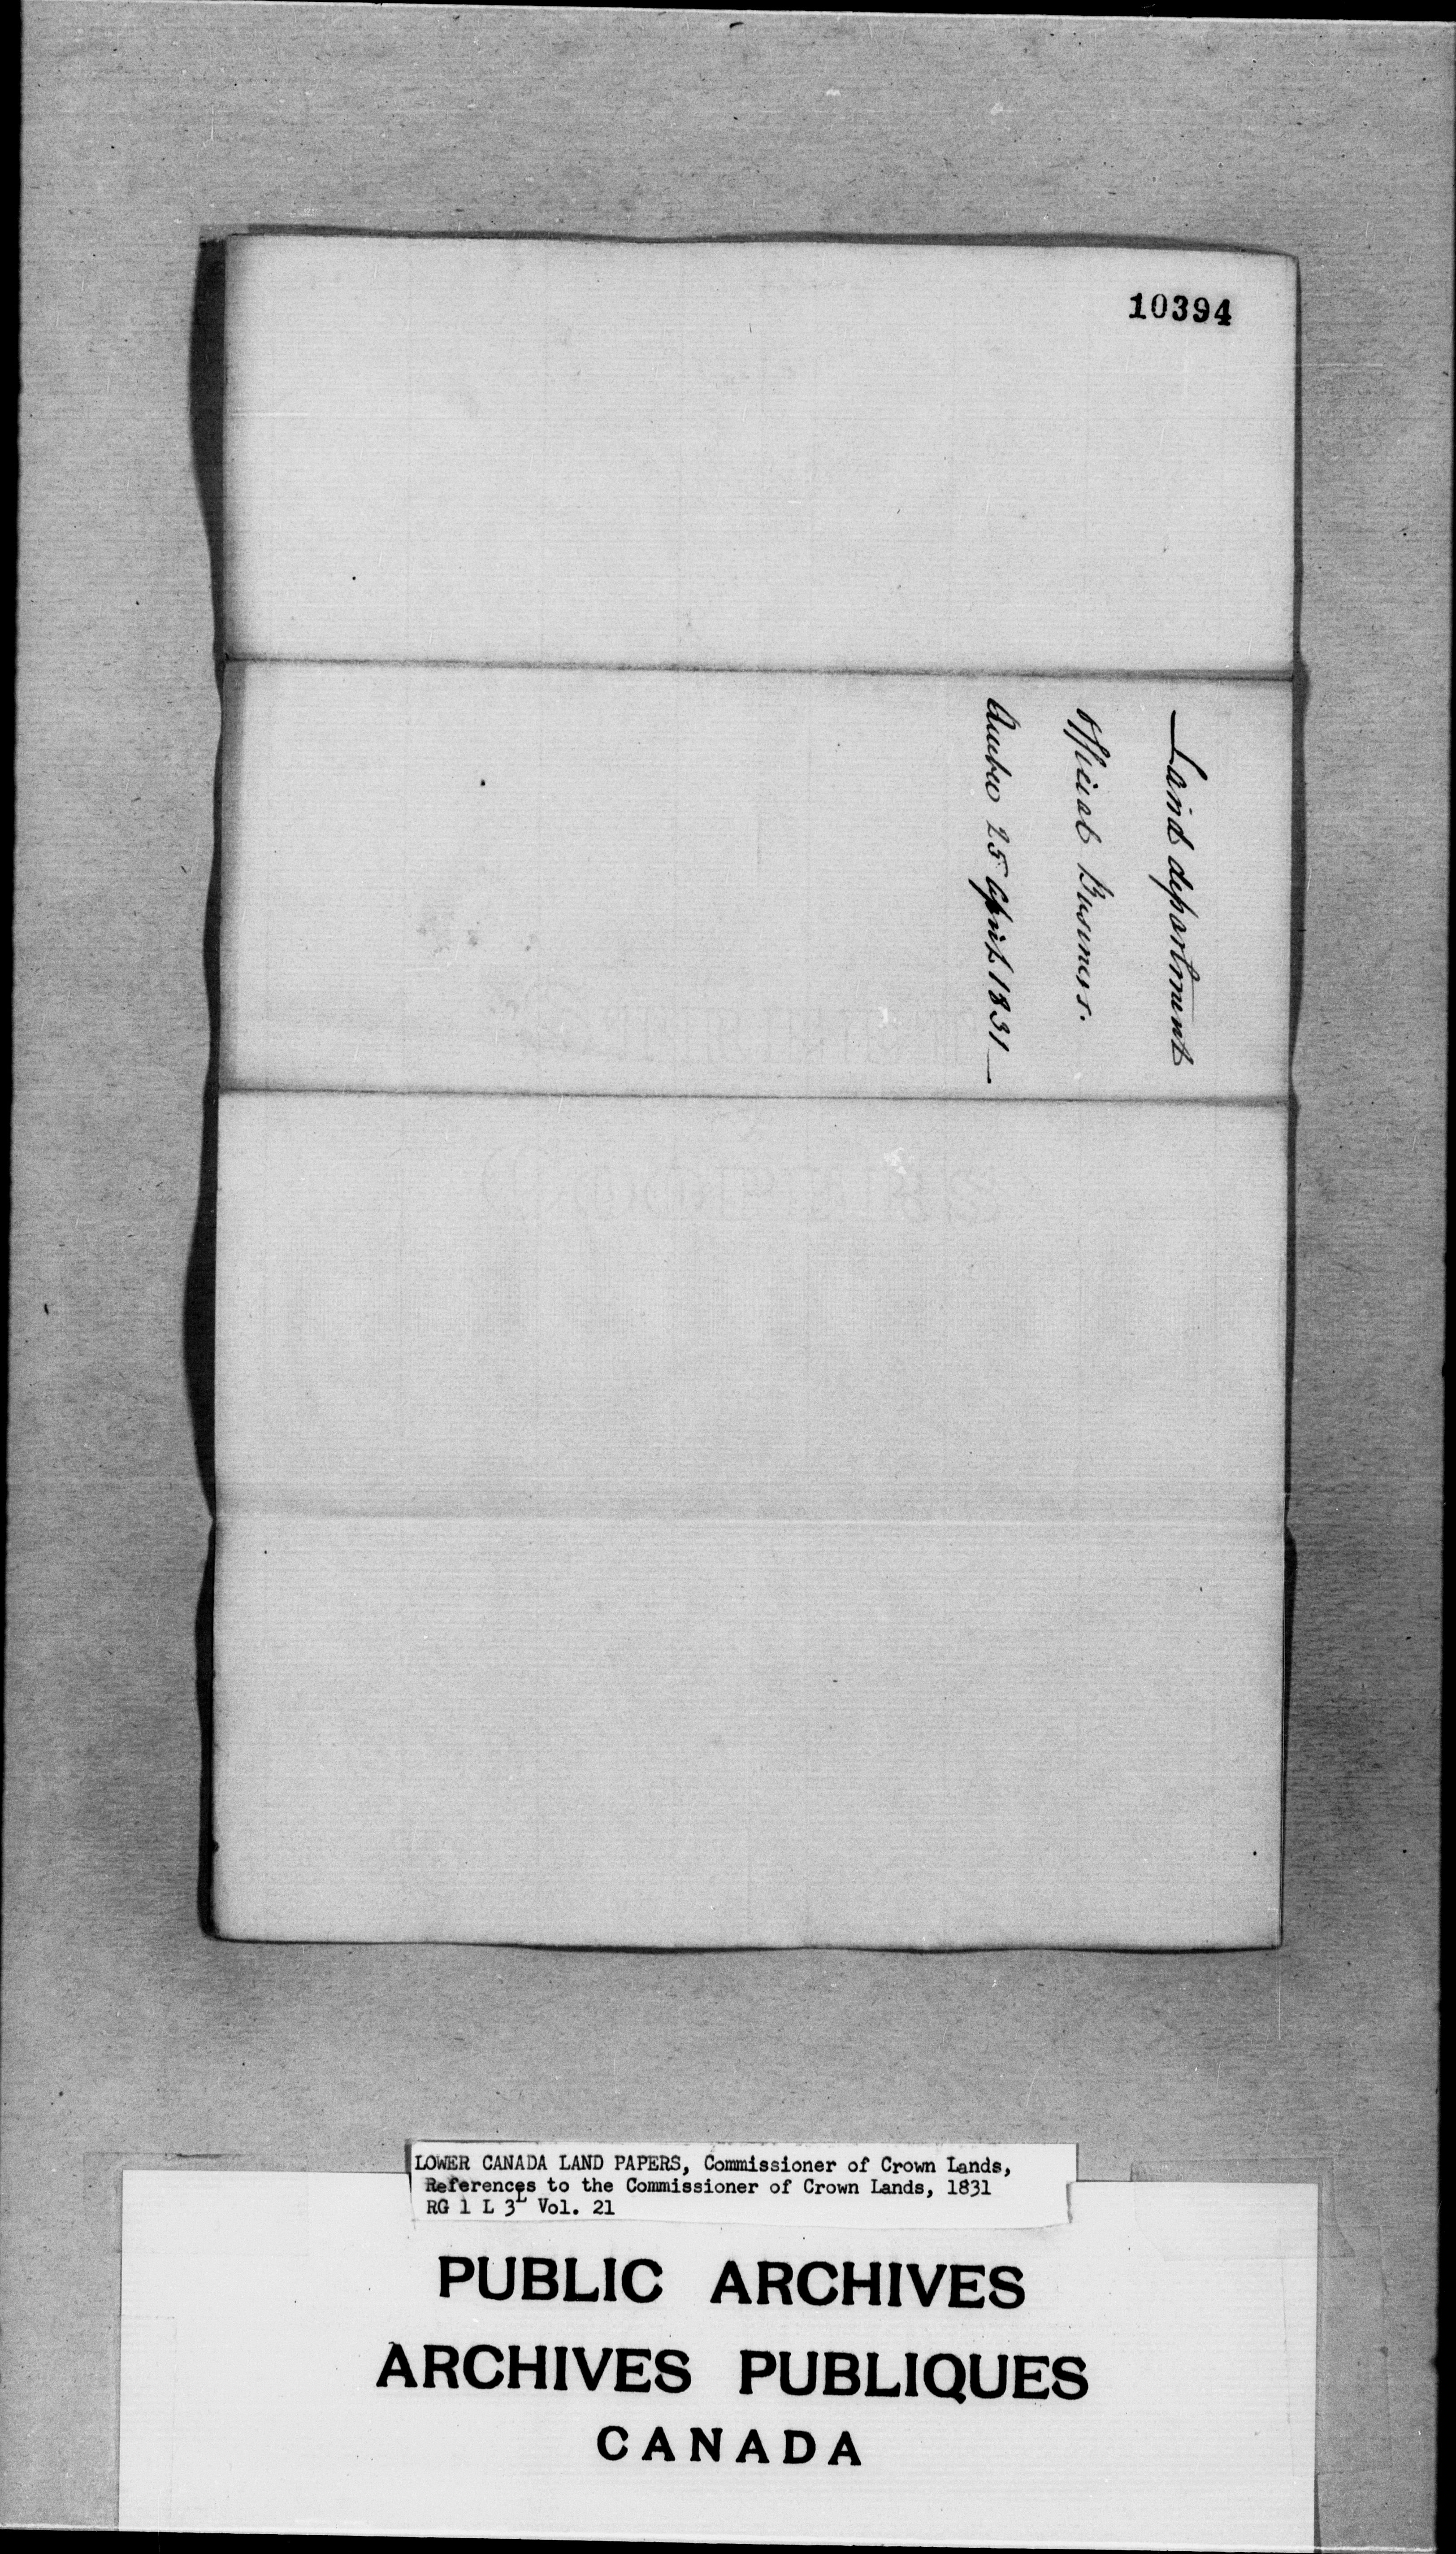 10394
Land department
Official Business.
Quebec 25 April 1831—
LOWER CANADA LAND PAPERS, Commissioner of Crown Lands,
References to the Commissioner of Crown Lands, 1831
RG 1 L 3L Vol. 21
PUBLIC ARCHIVES
ARCHIVES PUBLIQUES
CANADA